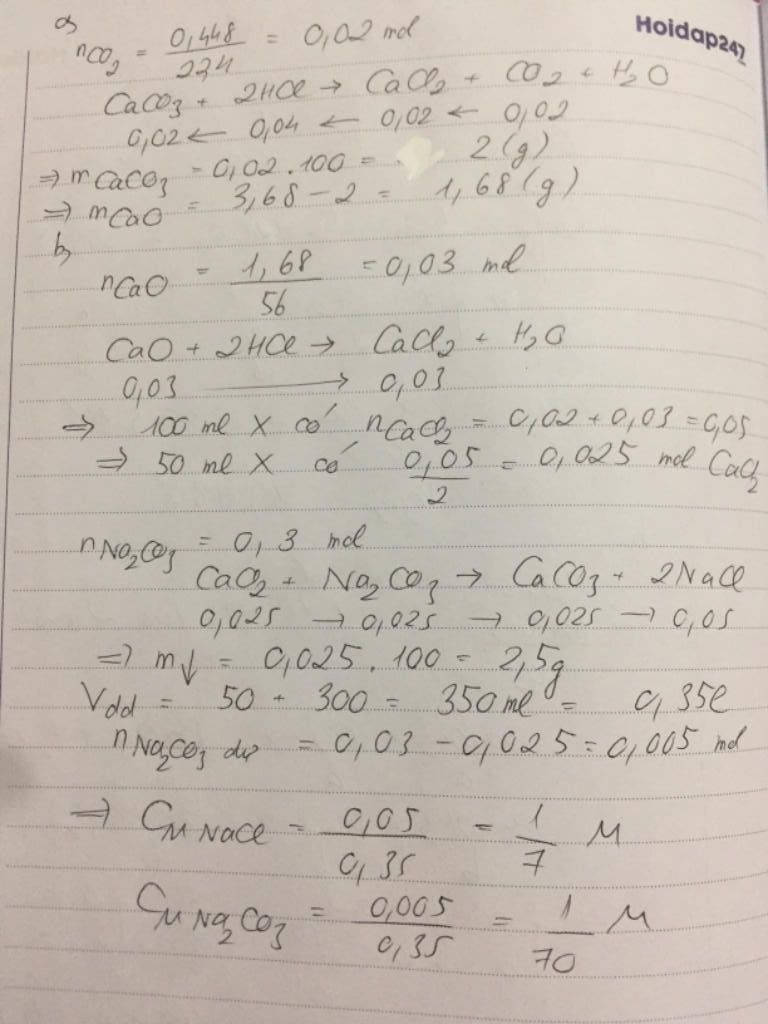 Hoidap247
a,
nCO₂ = 0,448/22,4 = 0,02 mol
CaCO₃ + 2HCl → CaCl₂ + CO₂ + H₂O
0,02 ← 0,04 ← 0,02 ← 0,02
⇒ mCaCO₃ = 0,02.100 = 2(g)
⇒ mCaO = 3,68 - 2 = 1,68(g)
b,
nCaO = 1,68/56 = 0,03 mol
CaO + 2HCl → CaCl₂ + H₂O
0,03 → 0,03
⇒ 100 ml X có nCaCl₂ = 0,02 + 0,03 = 0,05
⇒ 50 ml X có 0,05/2 = 0,025 mol CaCl₂
nNa₂CO₃ = 0,3 mol
CaCl₂ + Na₂CO₃ → CaCO₃ + 2NaCl
0,025 → 0,025 → 0,025 → 0,05
⇒ m↓ = 0,025.100 = 2,5g
Vdd = 50 + 300 = 350 ml = 0,35l
nNa₂CO₃ dư = 0,03 - 0,025 = 0,005 mol
⇒ CM NaCl = 0,05/0,35 = 1/7 M
CM Na₂CO₃ = 0,005/0,35 = 1/70 M